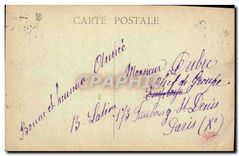 CARTE POSTALE
Bonne et heureuse Année
B. Latour
Monsieur Dubec
Chef de Groupe
173 Faubourg St Denis
Paris (Xe)